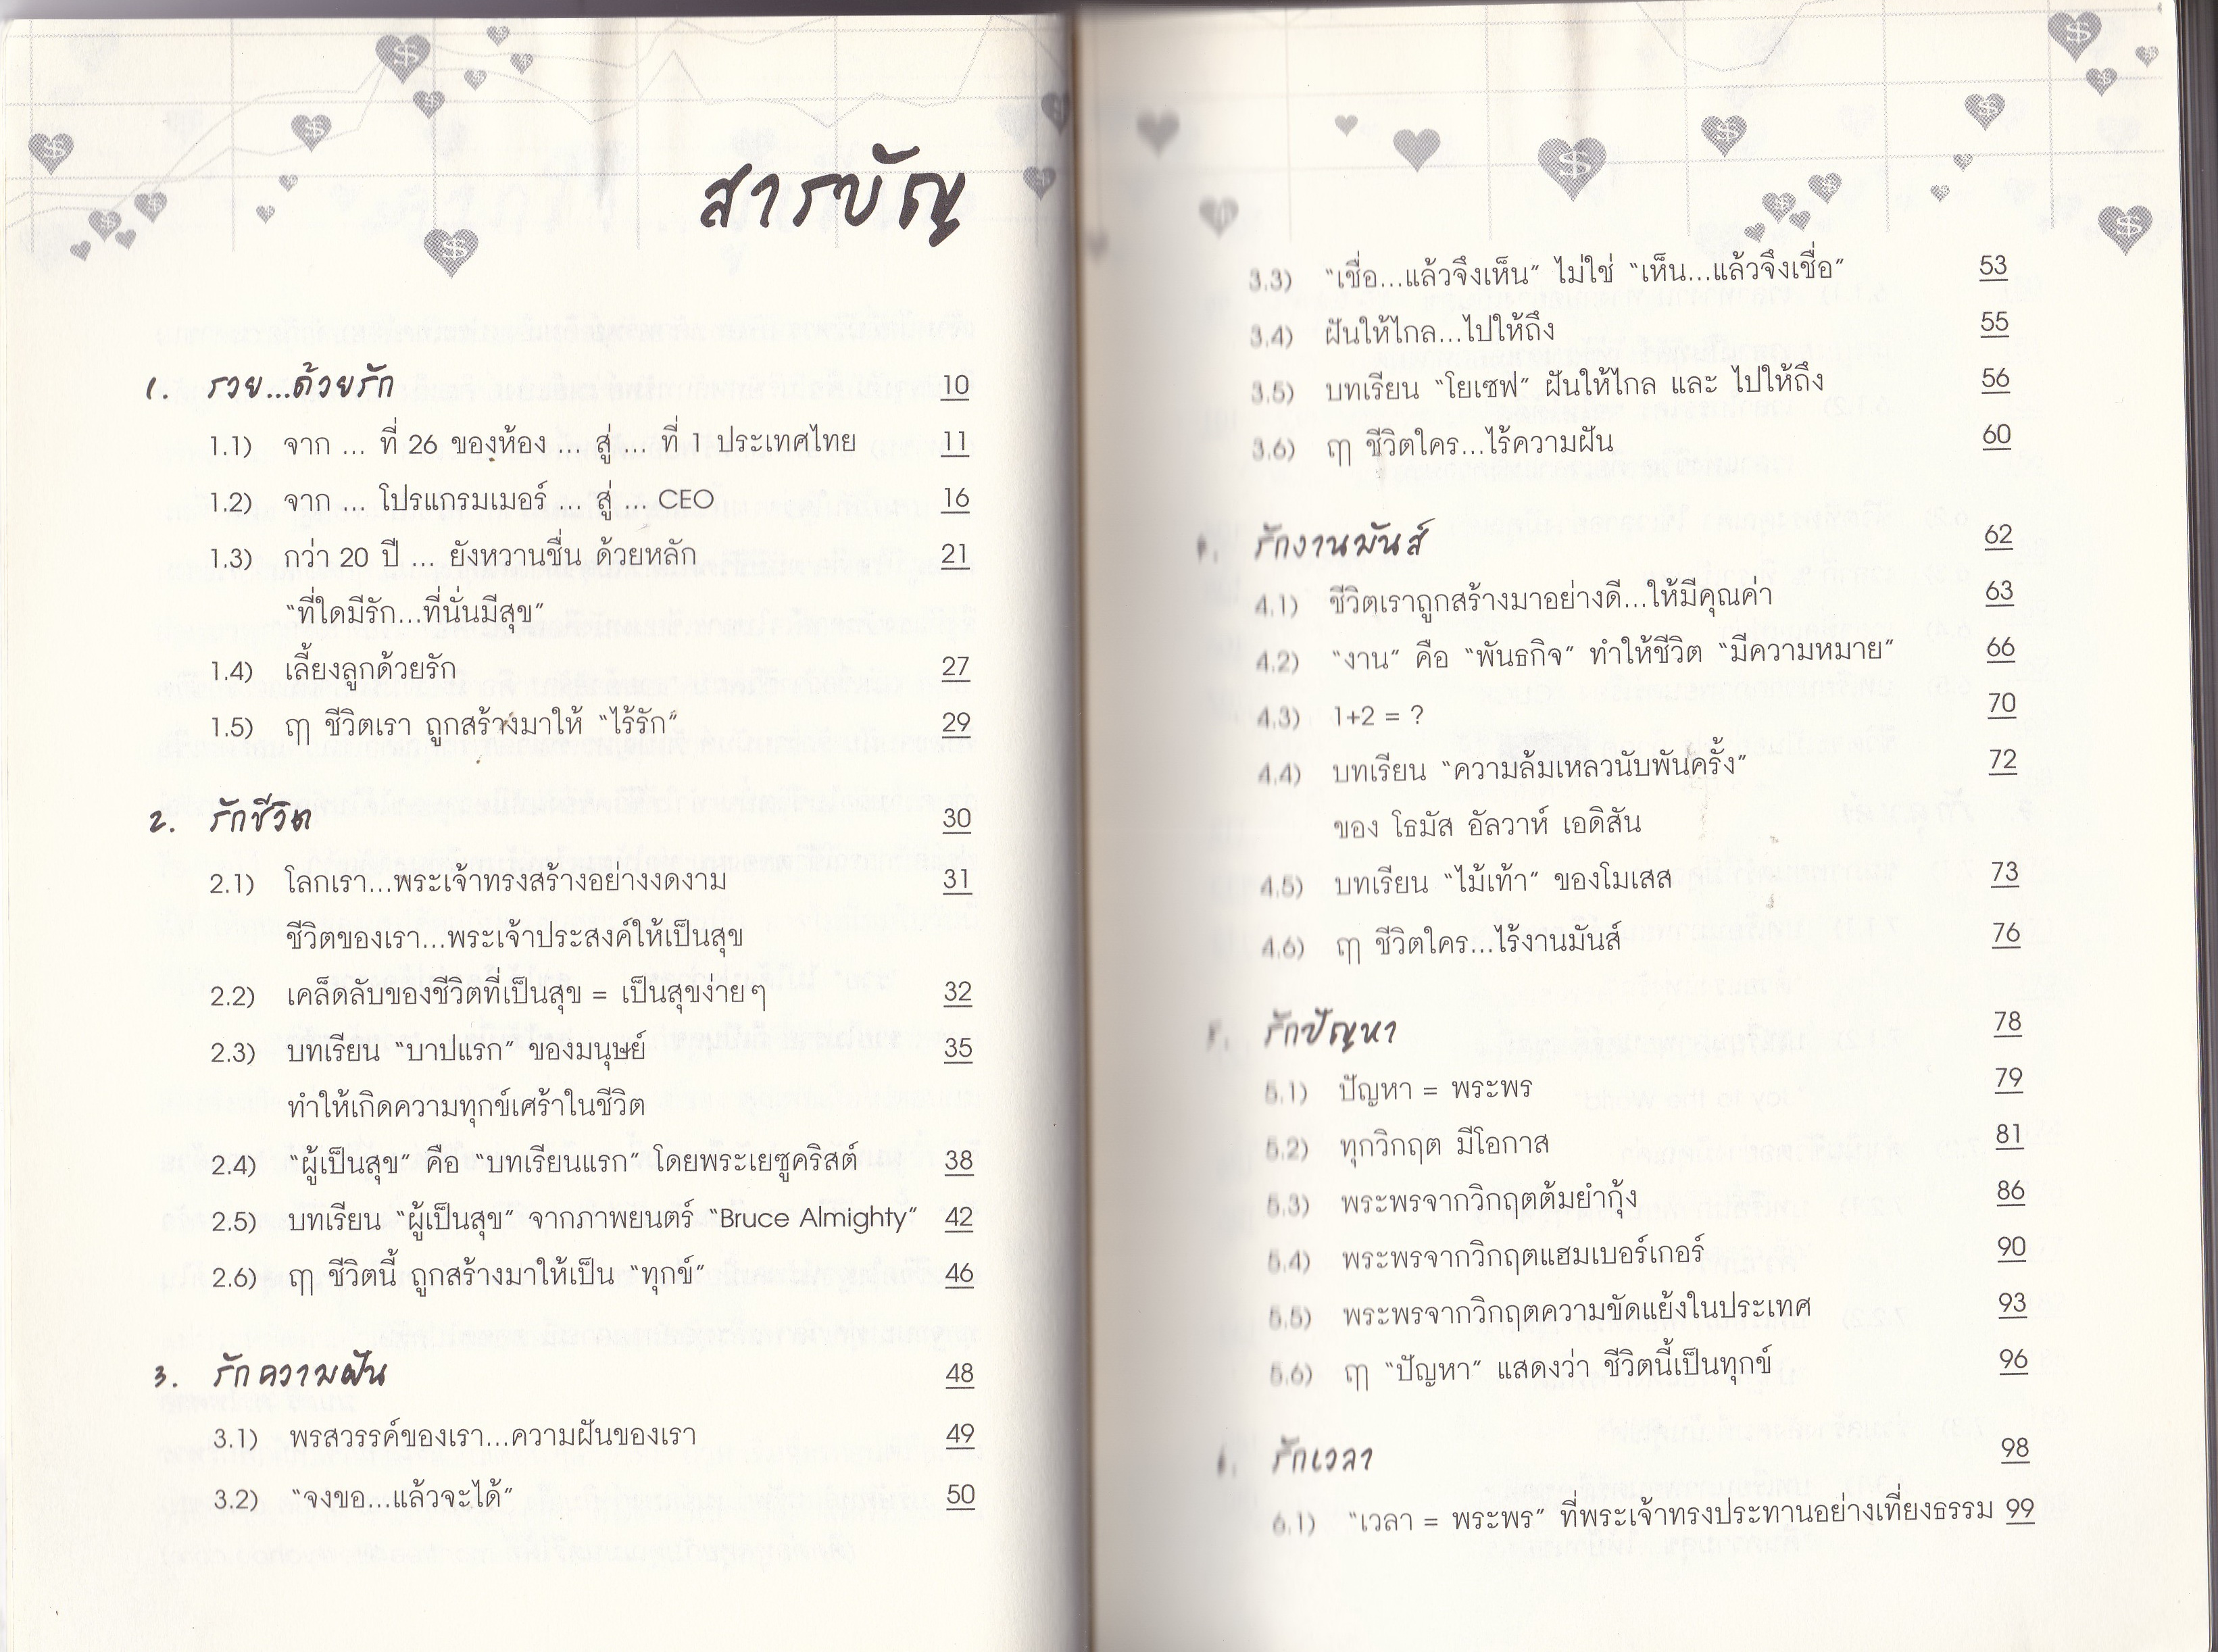 สารบัญ
1. รวย...ด้วยรัก 10
1.1) จาก ... ที่ 26 ของห้อง ... สู่ ... ที่ 1 ประเทศไทย 11
1.2) จาก ... โปรแกรมเมอร์ ... สู่ ... CEO 16
1.3) กว่า 20 ปี ... ยังหวานชื่น ด้วยหลัก 21
“ที่ใดมีรัก...ที่นั่นมีสุข”
1.4) เลี้ยงลูกด้วยรัก 27
1.5) ฤๅ ชีวิตเรา ถูกสร้างมาให้ “ไร้รัก” 29
2. รักชีวิต 30
2.1) โลกเรา...พระเจ้าทรงสร้างอย่างงดงาม 31
ชีวิตของเรา...พระเจ้าประสงค์ให้เป็นสุข
2.2) เคล็ดลับของชีวิตที่เป็นสุข = เป็นสุขง่ายๆ 32
2.3) บทเรียน “บาปแรก” ของมนุษย์ 35
ทำให้เกิดความทุกข์เศร้าในชีวิต
2.4) “ผู้เป็นสุข” คือ “บทเรียนแรก” โดยพระเยซูคริสต์ 38
2.5) บทเรียน “ผู้เป็นสุข” จากภาพยนตร์ “Bruce Almighty” 42
2.6) ฤๅ ชีวิตนี้ ถูกสร้างมาให้เป็น “ทุกข์” 46
3. รักความฝัน 48
3.1) พรสวรรค์ของเรา...ความฝันของเรา 49
3.2) “จงขอ...แล้วจะได้” 50
3.3) “เชื่อ...แล้วจึงเห็น” ไม่ใช่ “เห็น...แล้วจึงเชื่อ” 53
3.4) ฝันให้ไกล...ไปให้ถึง 55
3.5) บทเรียน “โยเซฟ” ฝันให้ไกล และ ไปให้ถึง 56
3.6) ฤๅ ชีวิตใคร...ไร้ความฝัน 60
รักงานมันส์ 62
4.1) ชีวิตเราถูกสร้างมาอย่างดี...ให้มีคุณค่า 63
4.2) “งาน” คือ “พันธกิจ” ทำให้ชีวิต “มีความหมาย” 66
4.3) 1+2 = ? 70
4.4) บทเรียน “ความล้มเหลวนับพันครั้ง” 72
ของ โธมัส อัลวาห์ เอดิสัน
4.5) บทเรียน “ไม้เท้า” ของโมเสส 73
4.6) ฤๅ ชีวิตใคร...ไร้งานมันส์ 76
รักปัญหา 78
5.1) ปัญหา = พระพร 79
5.2) ทุกวิกฤต มีโอกาส 81
5.3) พระพรจากวิกฤตต้มยำกุ้ง 86
5.4) พระพรจากวิกฤตแฮมเบอร์เกอร์ 90
5.5) พระพรจากวิกฤตความขัดแย้งในประเทศ 93
5.6) ฤๅ “ปัญหา” แสดงว่า ชีวิตนี้เป็นทุกข์ 96
รักเวลา 98
6.1) “เวลา = พระพร” ที่พระเจ้าทรงประทานอย่างเที่ยงธรรม 99